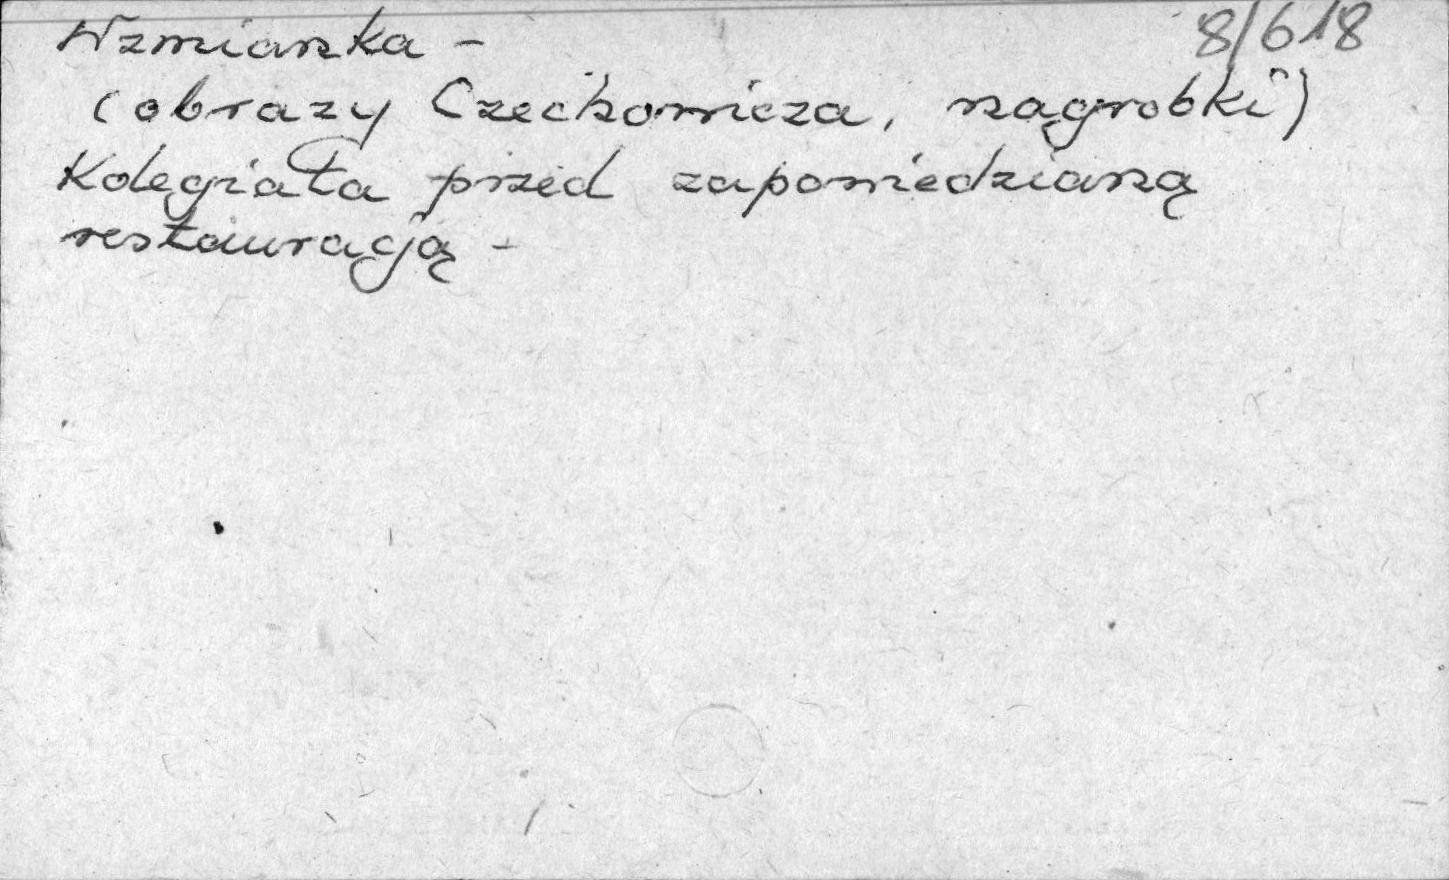 8/618
Wzmianka -
(obrazy Czechowicza, nagrobki)
Kolegiata przed zapowiedzianą
restauracją -